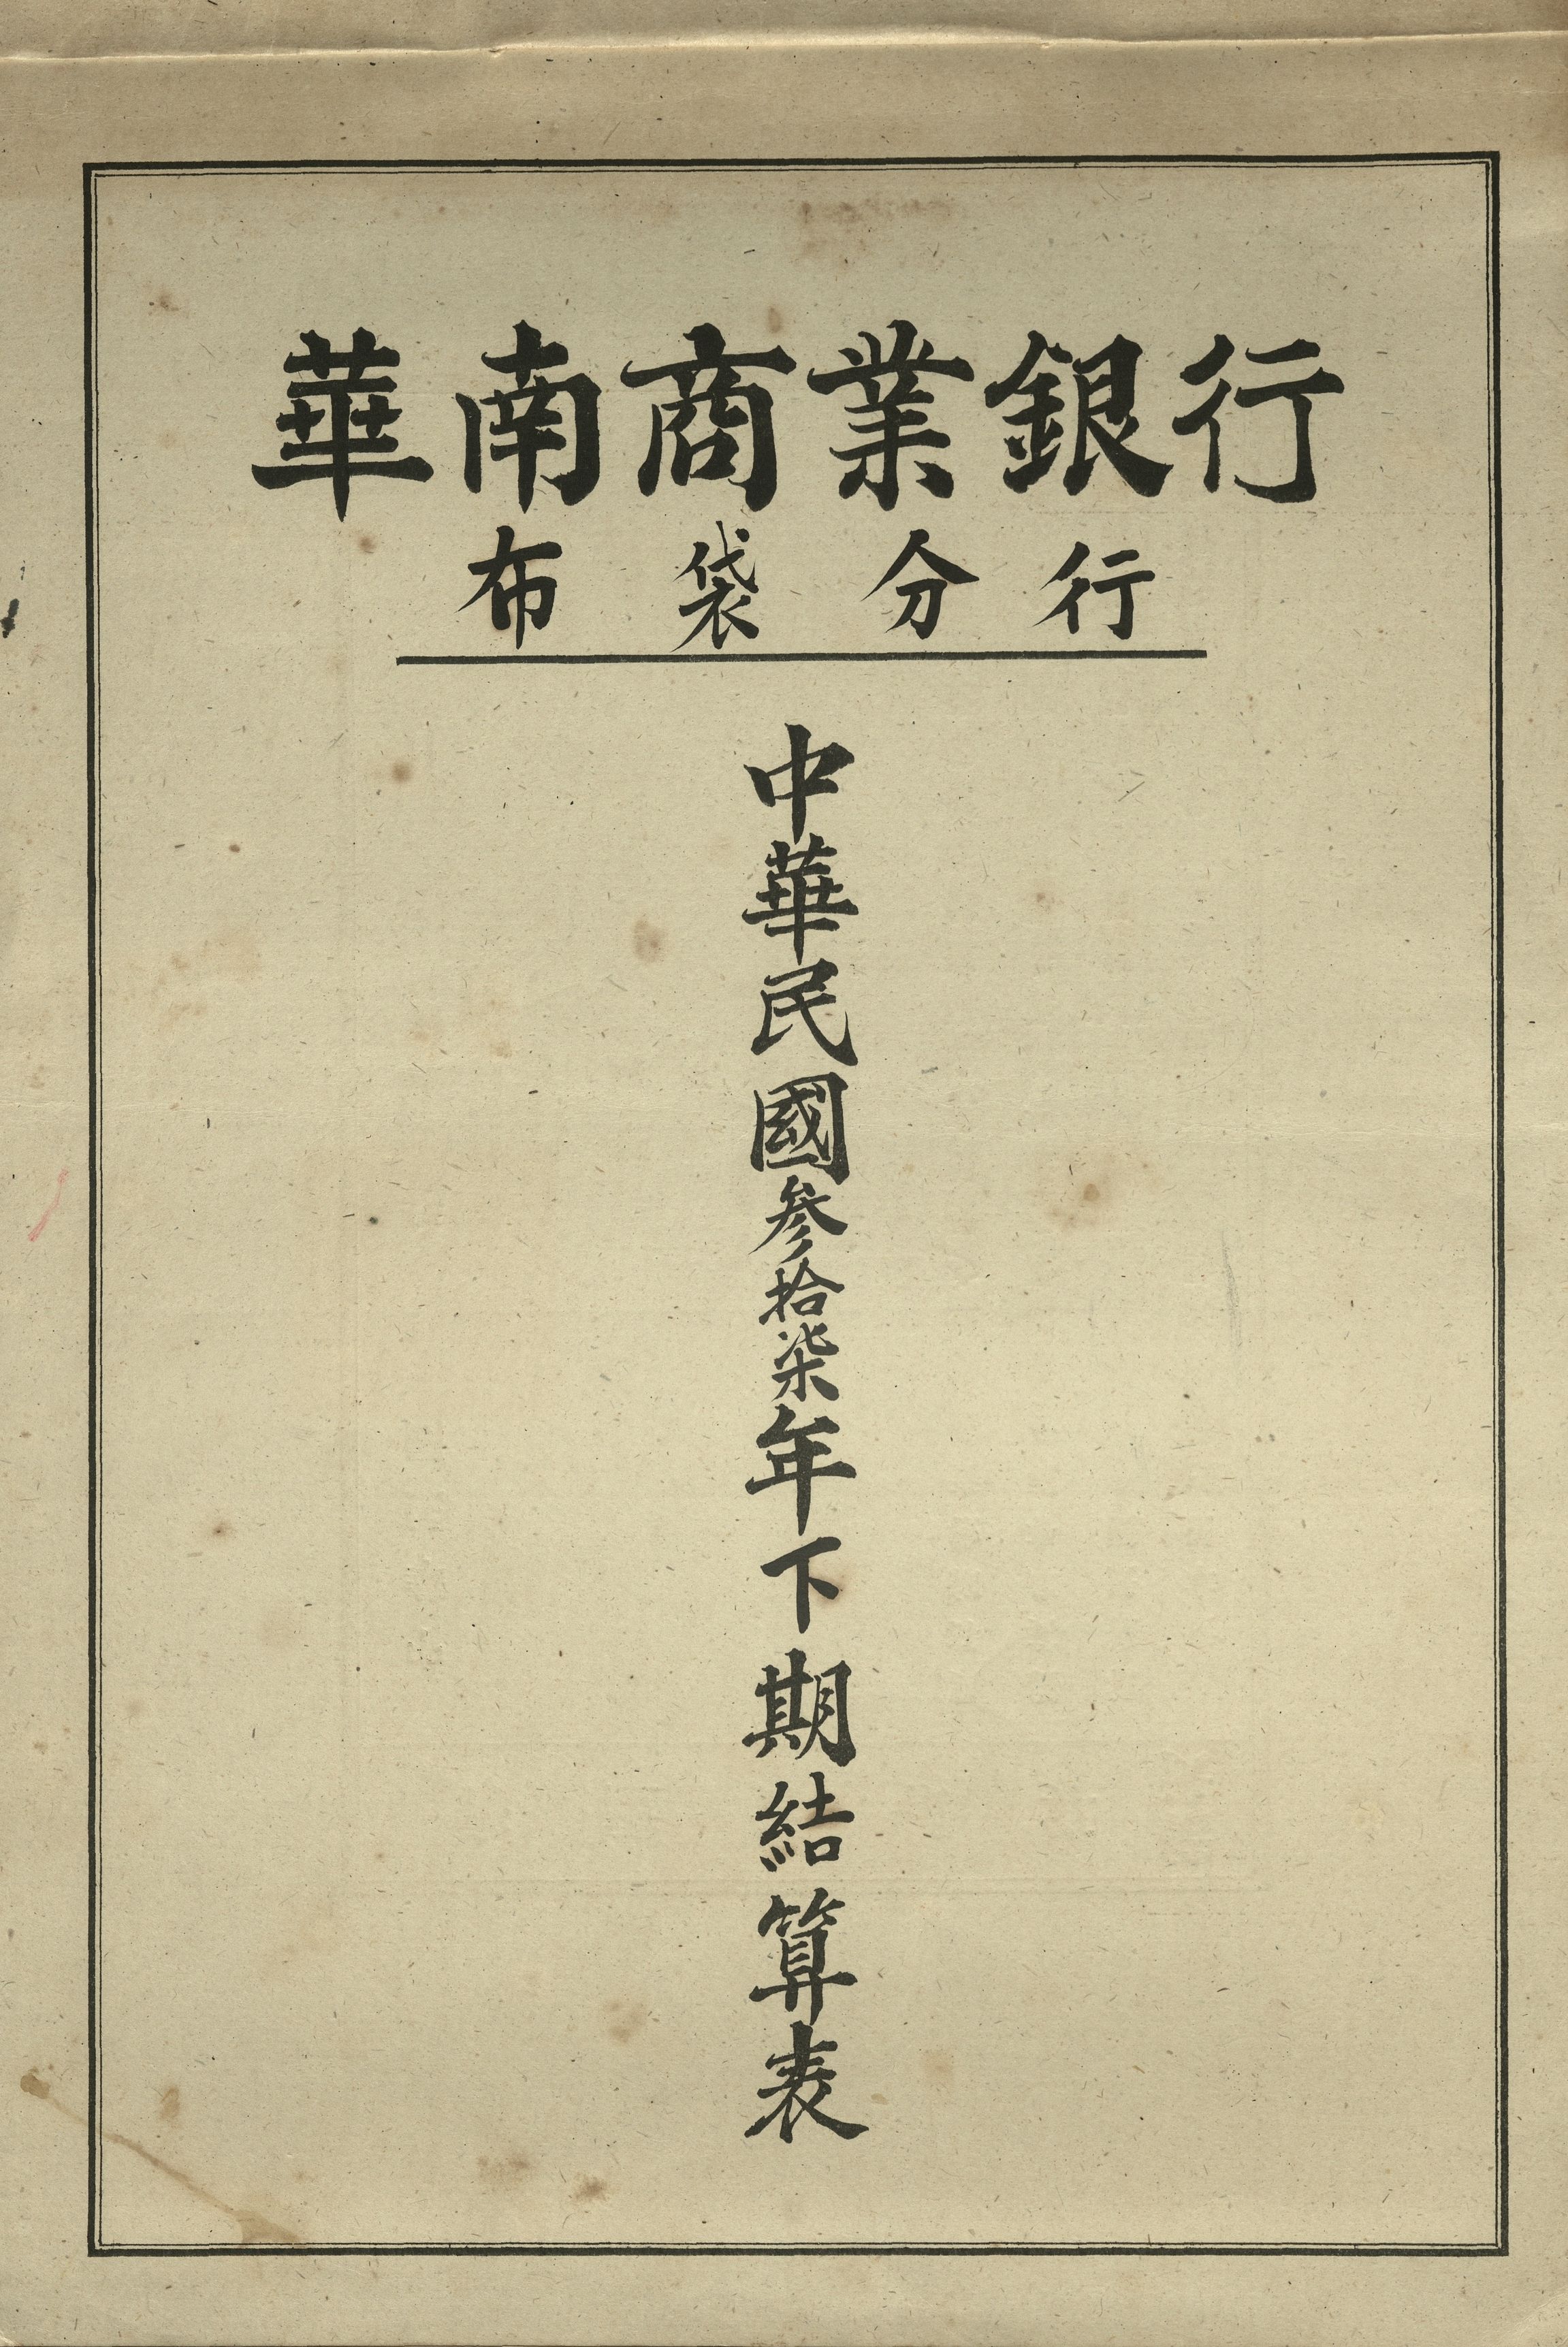 華南商業銀行
布袋分行
中華民國參拾柒年下期結算表